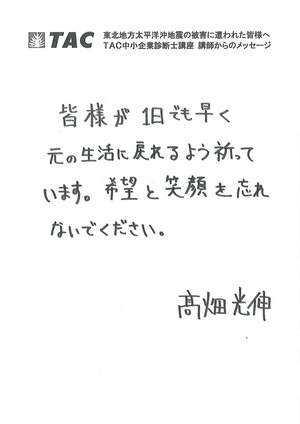 TAC
東北地方太平洋沖地震の被害に遭われた皆様へ
TAC中小企業診断士講座 講師からのメッセージ
皆様が1日でも早く
元の生活に戻れるよう祈って
います。希望と笑顔を忘れ
ないでください。
髙畑光伸